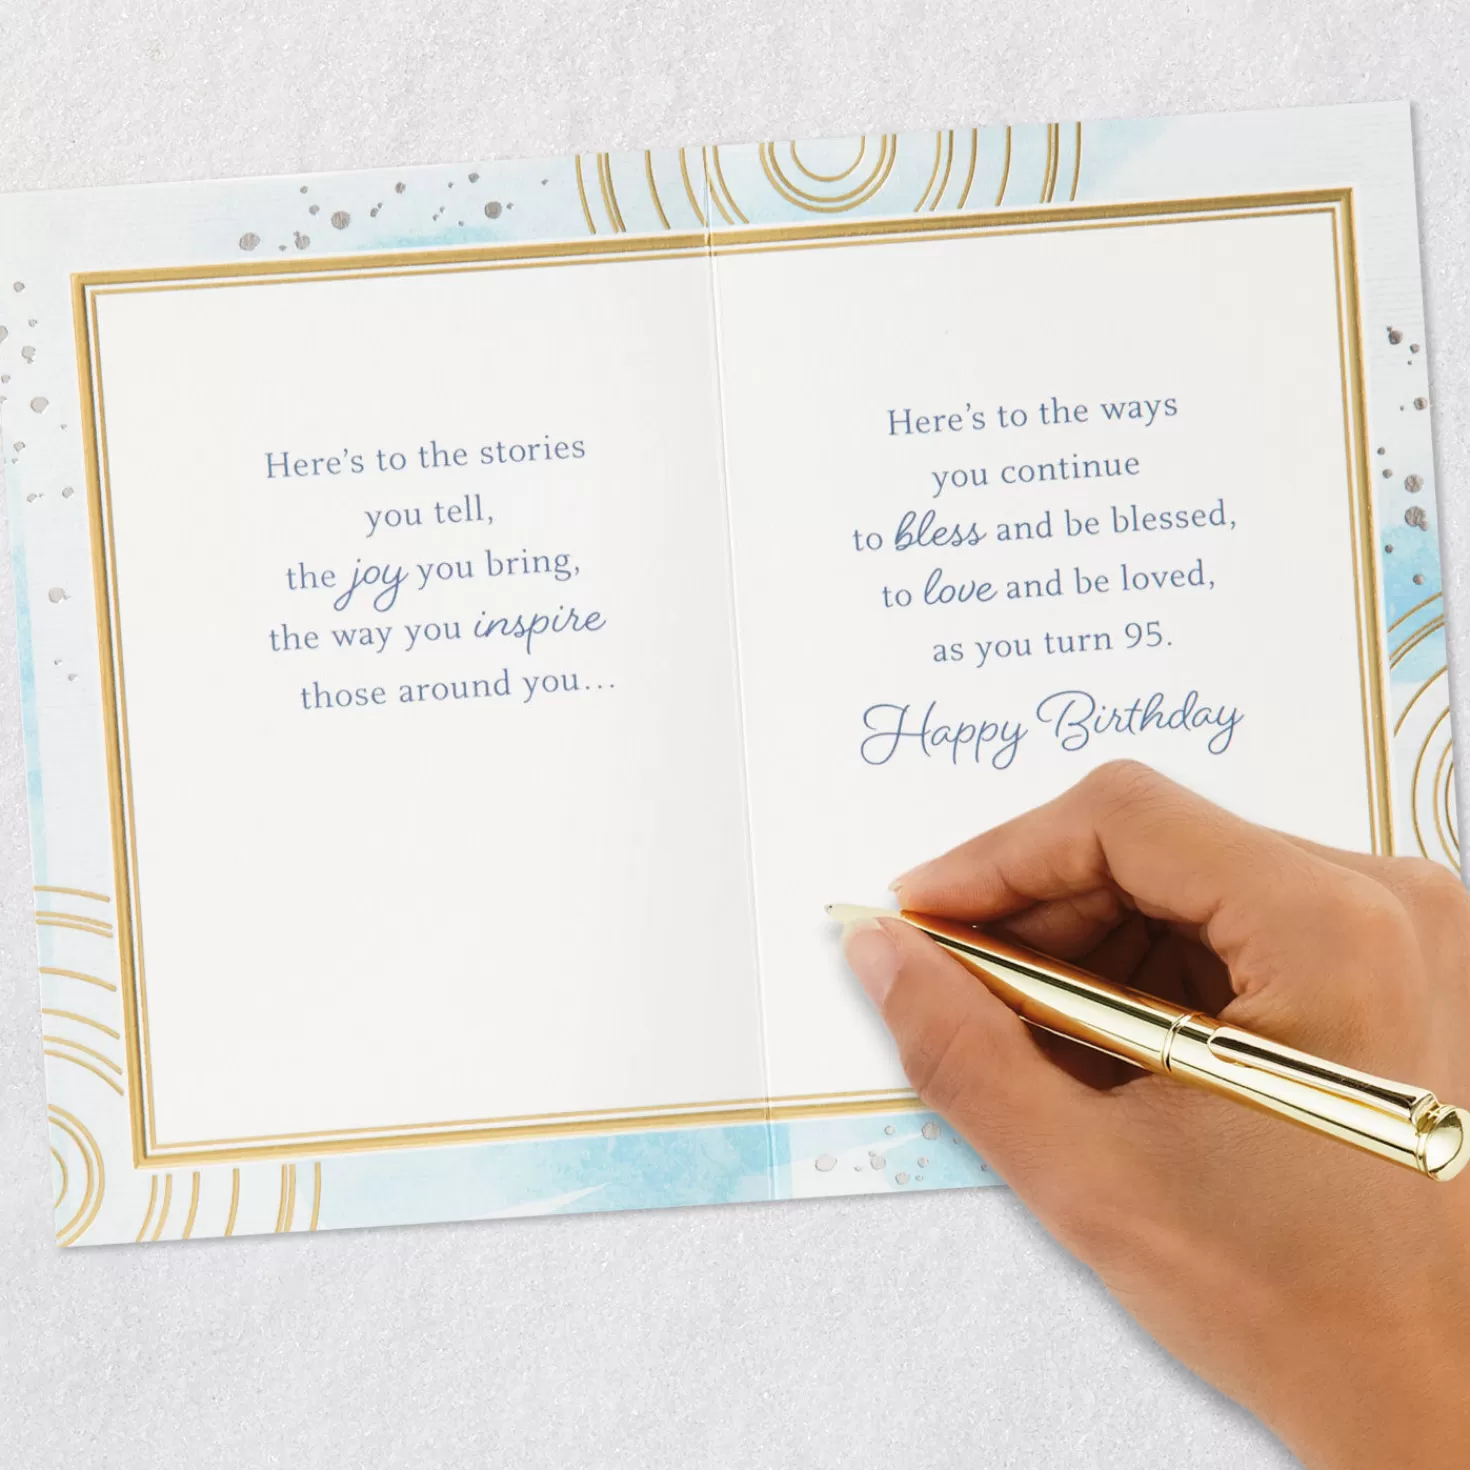 Here’s to the stories
you tell,
the joy you bring,
the way you inspire
those around you…
Here’s to the ways
you continue
to bless and be blessed,
to love and be loved,
as you turn 95.
Happy Birthday